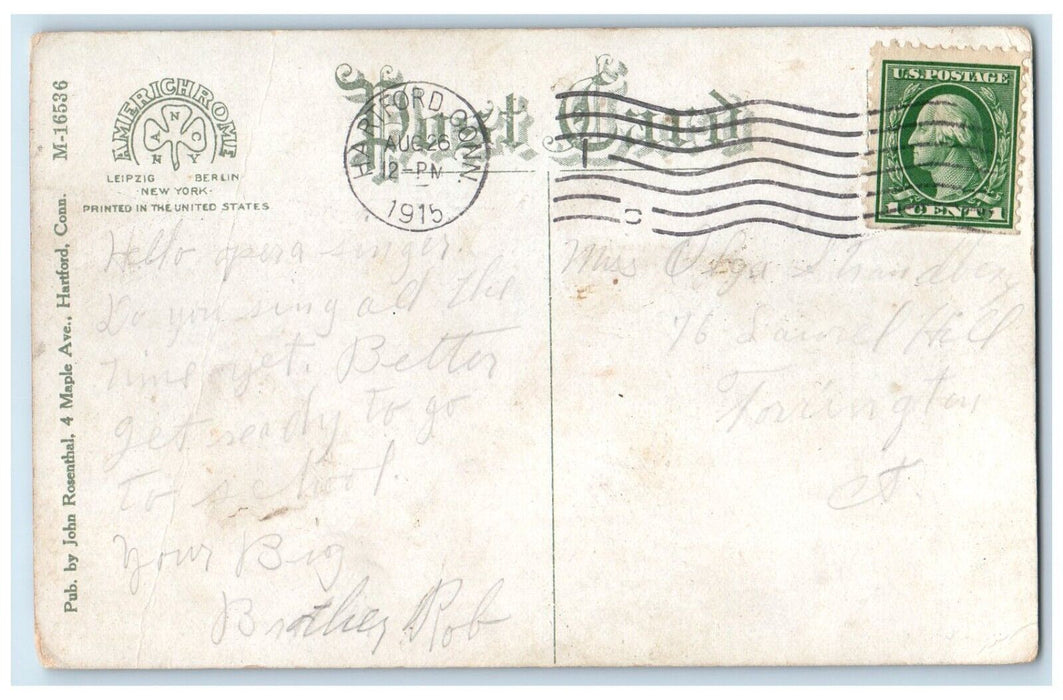 M-16536
Pub. by John Rosenthal, 4 Maple Ave., Hartford, Conn.
AMERICHROME
ANCNY
LEIPZIG · BERLIN
· NEW YORK ·
PRINTED IN THE UNITED STATES
Post Card
HARTFORD CONN.
AUG 26
12-PM
1915
U.S. POSTAGE
1 CENT 1
Hello opera singer.
Do you sing all the
time yet. Better
get ready to go
to school.
Your Big
Brother Rob
Miss Olga Strandberg
76 Laurel Hill
Torrington
Ct.